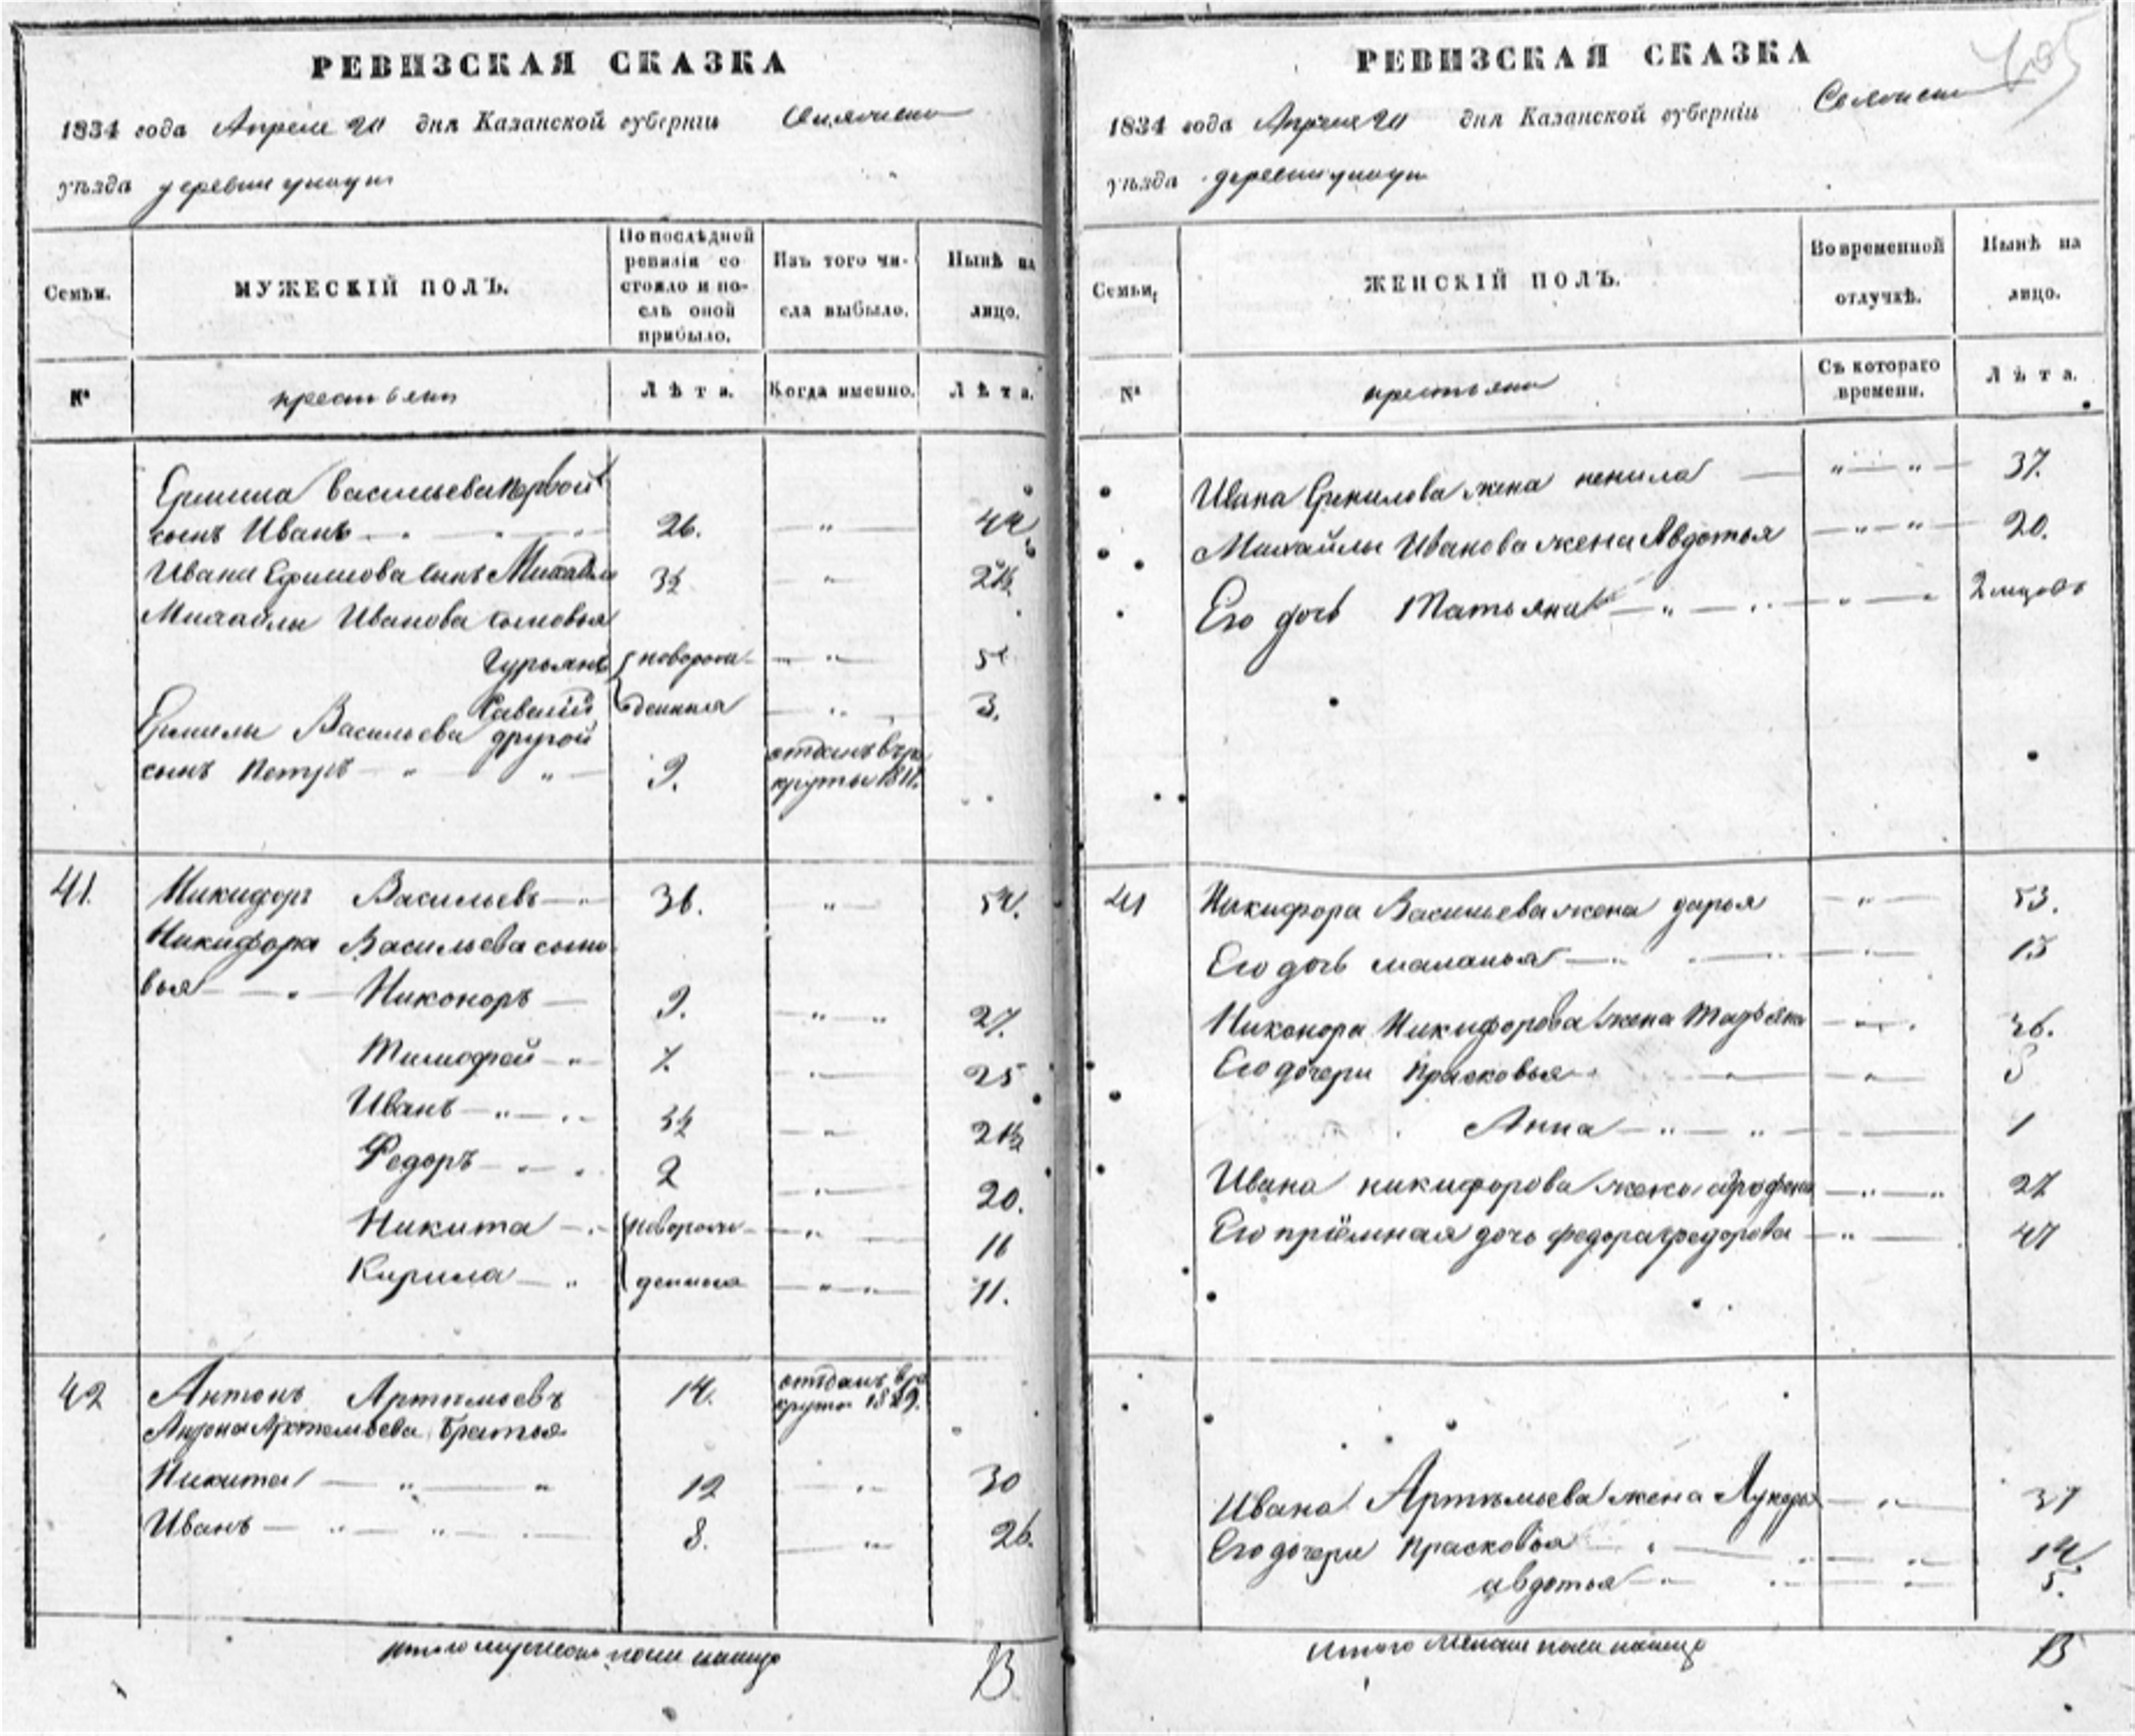 РЕВИЗСКАЯ СКАЗКА
1834 года Апреля 20 дня Казанской губернiи
уѣзда деревни
Семьи.
МУЖЕСКIЙ ПОЛЪ.
По послѣдней ревизiи состояло и послѣ оной прибыло.
Изъ того числа выбыло.
Нынѣ на лицо.
№
крестьяне
Лѣта.
Когда именно.
Лѣта.
Васильева первой
сынъ Иванъ 26. 44
Ивана Ефимова сынъ Михайла 3½ 21½
Михайлы Иванова сыновья
Гурьянъ новорож- 5
Савелiй денныя 3.
Ермилы Васильева другой
сынъ Петръ 9. отданъ в ре
круты 1811.
41. Никифоръ Васильевъ 36. 54.
Никифора Васильева сыно
вья Никоноръ 9. 27.
Тимофей 7. 25
Иванъ 3½ 21½
Федоръ 2 20.
Никита новорож- 16
Кирила денныя 11.
42 Антонъ Артемьевъ 14. отданъ в ре
круты 1829.
Артемьева братья
Никита 12 30
Иванъ 8. 26.
итого мужеска пола налицо 13
РЕВИЗСКАЯ СКАЗКА
1834 года Апреля 20 дня Казанской губернiи
уѣзда деревни
Семьи.
ЖЕНСКIЙ ПОЛЪ.
Во временной отлучкѣ.
Нынѣ на лицо.
№
крестьяне
Съ котораго времени.
Лѣта.
Ивана жена ненила 37.
Михайлы Иванова жена Авдотья 20.
Его дочь Татьяна 2
41 Никифора Васильева жена дарья 53.
Его дочь маланья 15
Никонора Никифорова жена 26.
Его дочери Прасковья 5
Анна 1
Ивана никифорова жена 27
Его прiёмная дочь федора федорова
Ивана Артемьева жена 37
Его дочери Прасковья 14
авдотья 5.
итого женска пола налицо 13